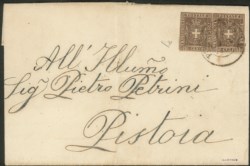 All' Illumo
Sig Pietro Petrini
Pistoia